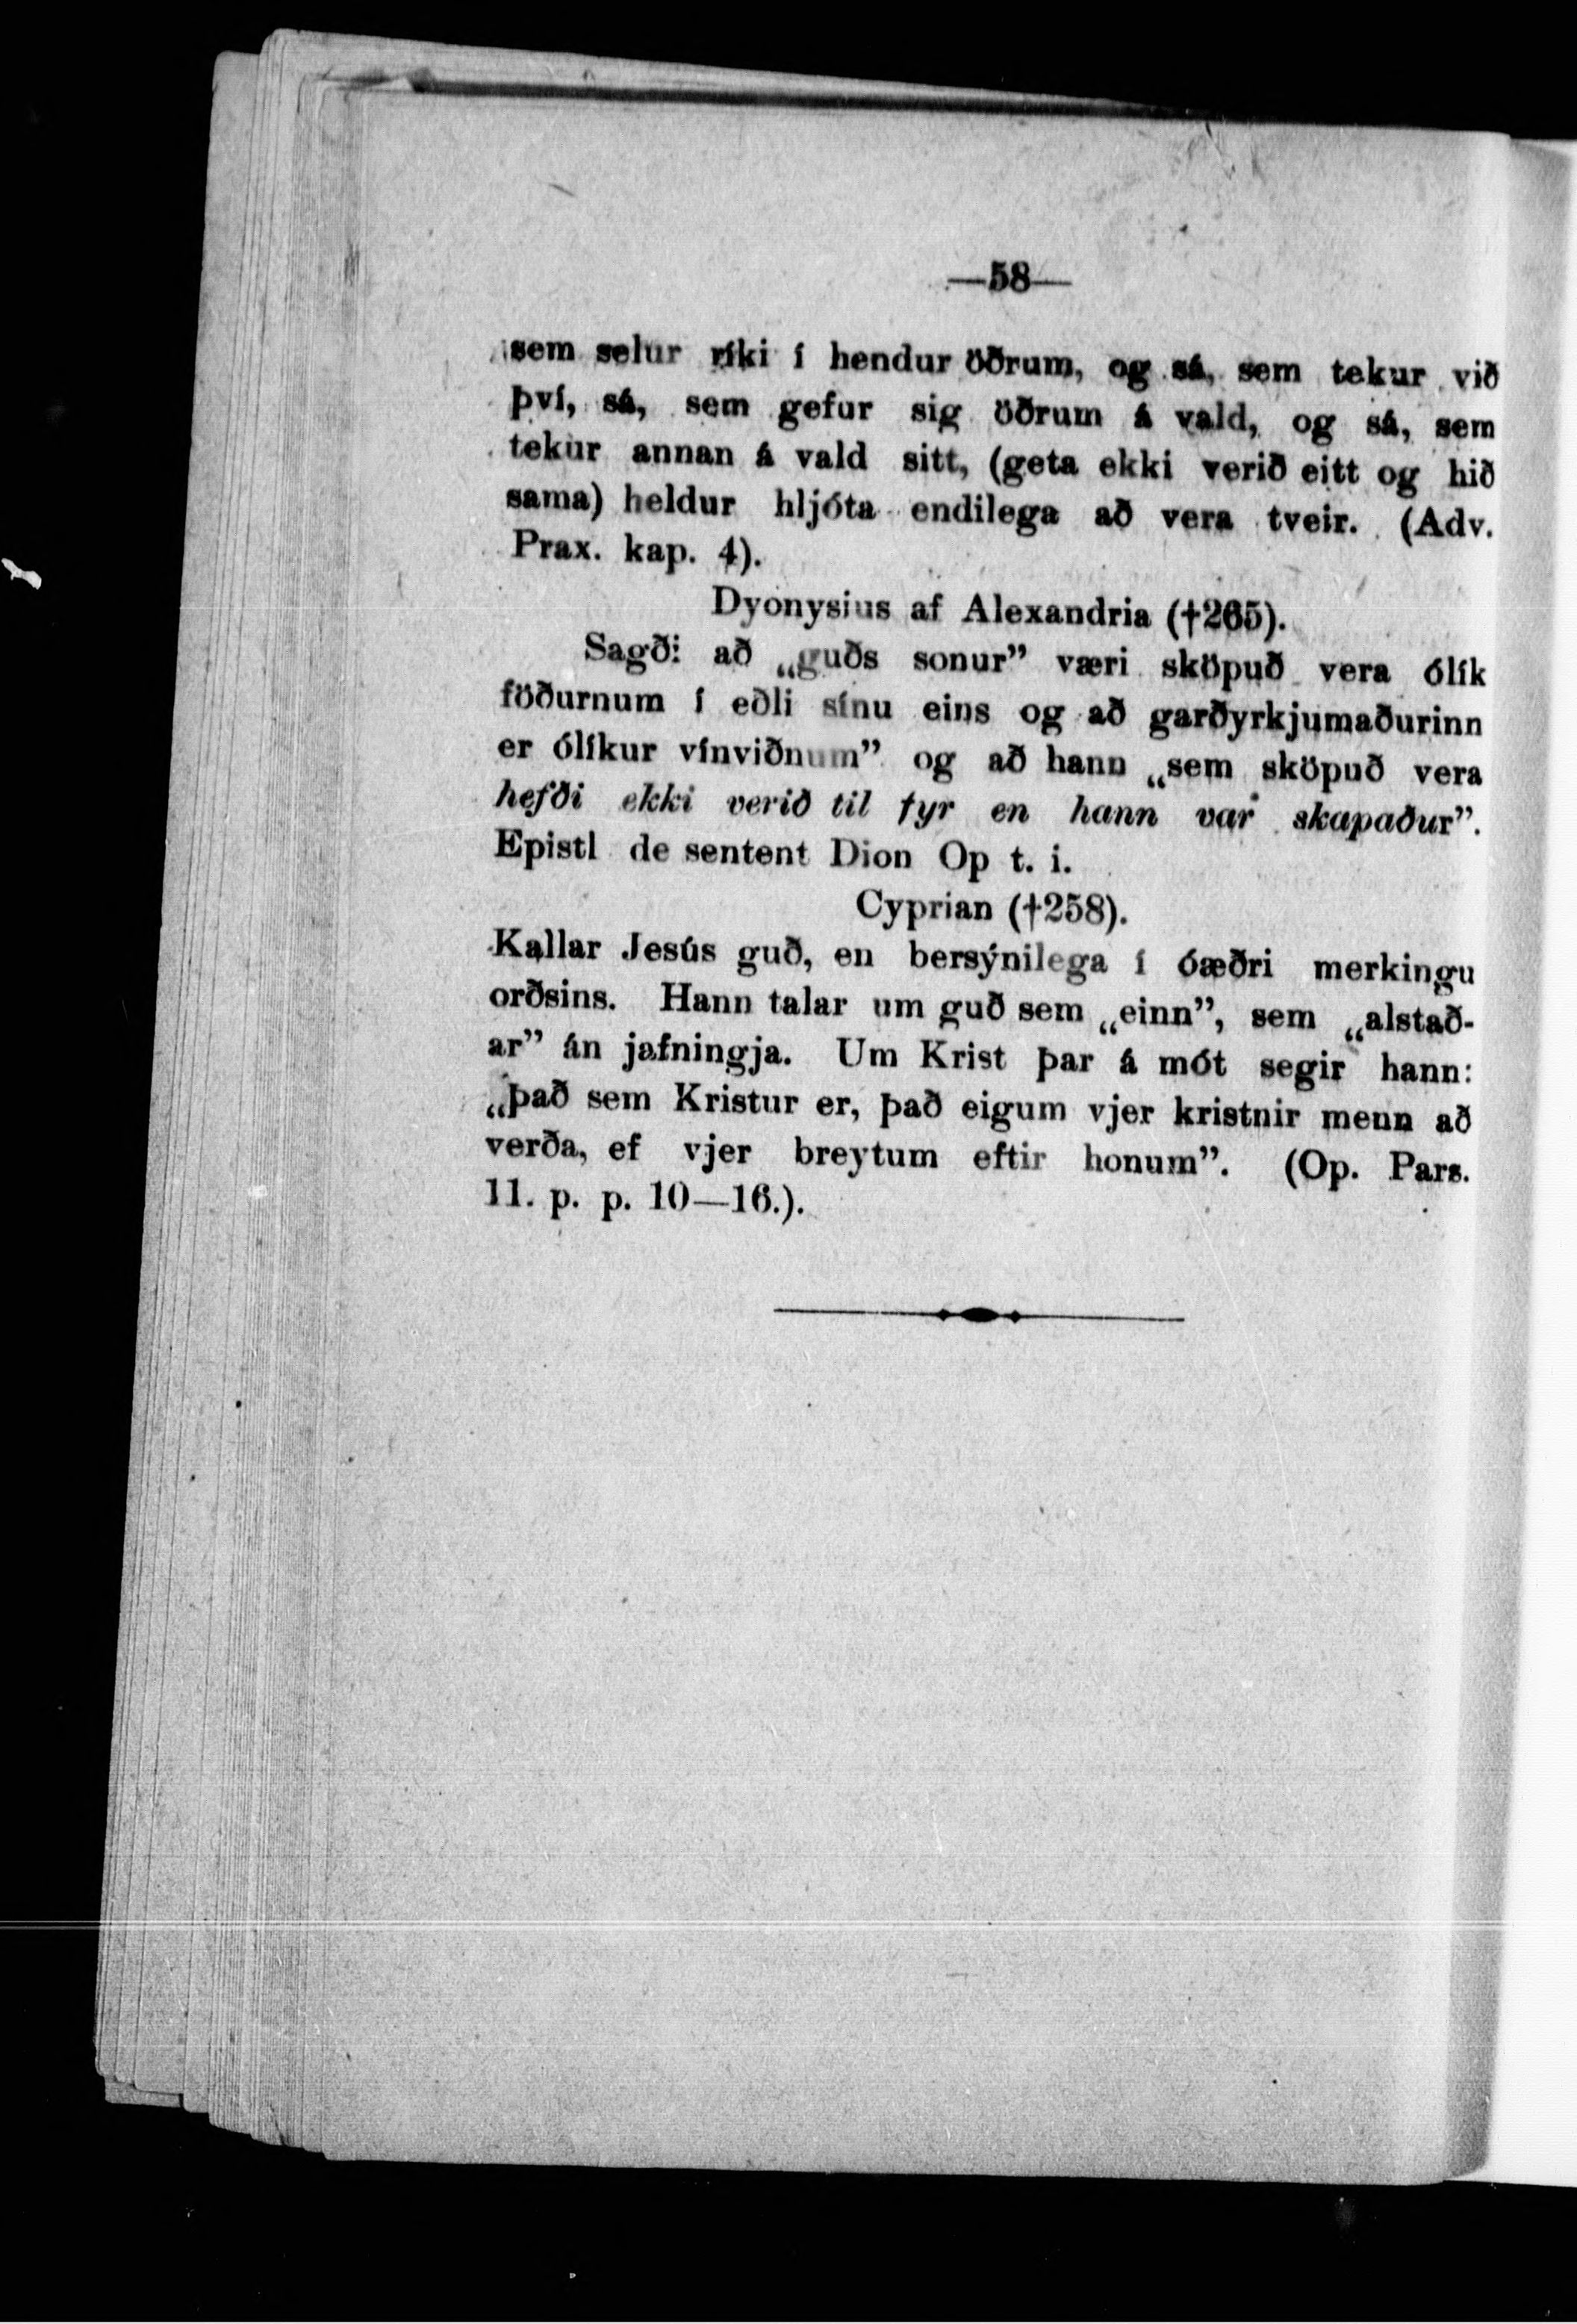 —58—
sem selur ríki í hendur öðrum, og sá, sem tekur við
því, sá, sem gefur sig öðrum á vald, og sá, sem
tekur annan á vald sitt, (geta ekki verið eitt og hið
sama) heldur hljóta endilega að vera tveir. (Adv.
Prax. kap. 4).
Dyonysius af Alexandria (†265).
Sagði að „guðs sonur” væri sköpuð vera ólík
föðurnum í eðli sínu eins og að garðyrkjumaðurinn
er ólíkur vínviðnum” og að hann „sem sköpuð vera
hefði ekki verið til fyr en hann var skapaður”.
Epistl de sentent Dion Op t. i.
Cyprian (†258).
Kallar Jesús guð, en bersýnilega í óæðri merkingu
orðsins. Hann talar um guð sem „einn”, sem „alstað-
ar” án jafningja. Um Krist þar á mót segir hann:
„það sem Kristur er, það eigum vjer kristnir menn að
verða, ef vjer breytum eftir honum”. (Op. Pars.
11. p. p. 10—16.).